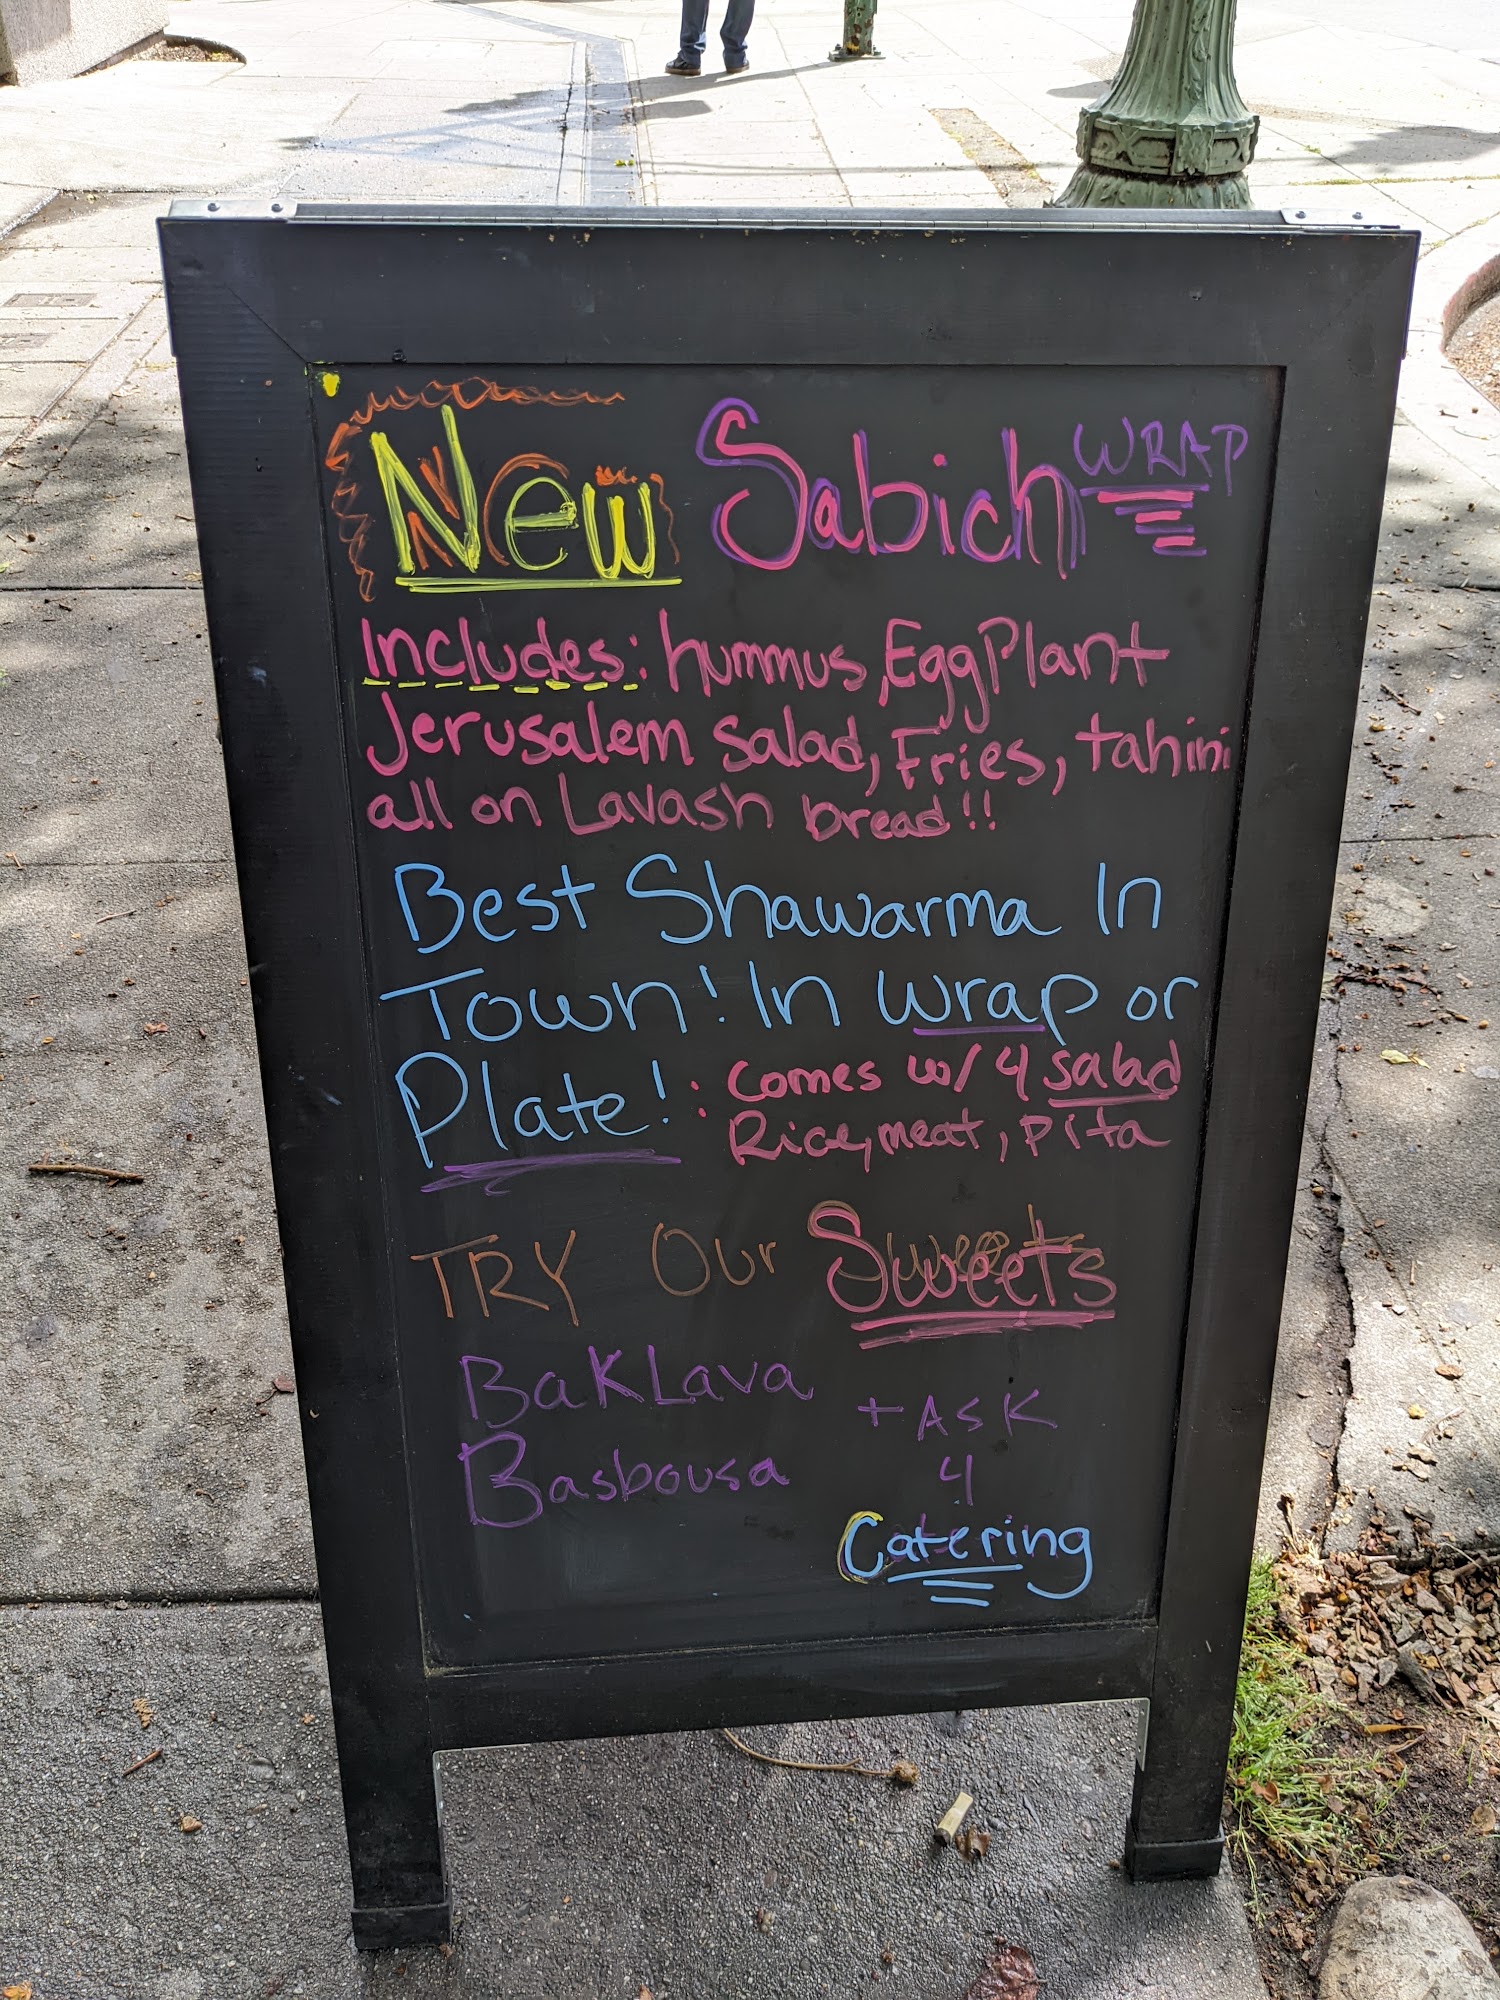 New Sabich WRAP
Includes: hummus, EggPlant
Jerusalem salad, Fries, tahini
all on Lavash bread!!
Best Shawarma In
Town! In wrap or
Plate! : comes w/ 4 salad
Rice, meat, pita
TRY Our Sweets
BaKLava
+ ASK
Basbousa
4
Catering